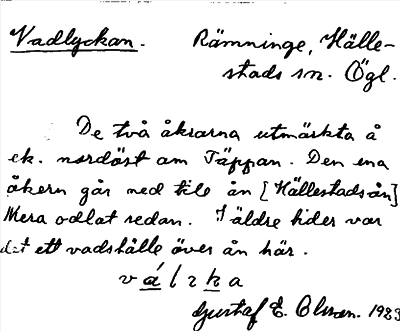 Vadlyckan. Rämninge, Hälle-
stads sn. Ögl.
De två åkrarna utmärkta å
ek. nordöst om Täppan. Den ena
åkern går ned till ån [Hällestadsån]
Mera odlat sedan. I äldre tider var
det ett vadställe över ån här.
v á l ɿ k a
Gustaf E. Olsson. 1923